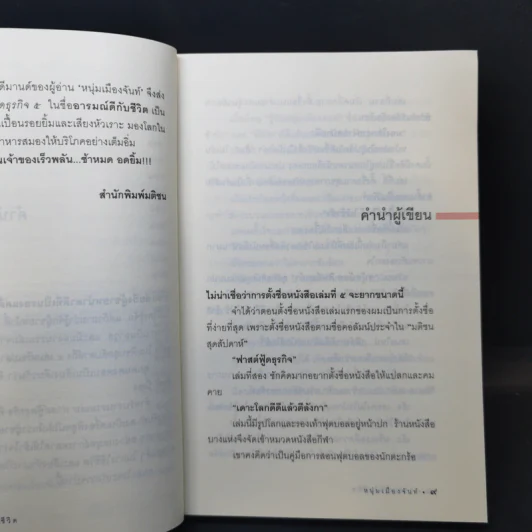 ดีมานด์ของผู้อ่าน ‘หนุ่มเมืองจันท์’ จึงส่ง
ธุรกิจ ๕ ในชื่ออารมณ์ดีกับชีวิต เป็น
เปื้อนรอยยิ้มและเสียงหัวเราะ มองโลกใน
อาหารสมองให้บริโภคอย่างเต็มอิ่ม
เจ้าของเร็วพลัน...ช้าหมด อดยิ้ม!!!
สำนักพิมพ์มติชน
คำนำผู้เขียน
ไม่น่าเชื่อว่าการตั้งชื่อหนังสือเล่มที่ ๕ จะยากขนาดนี้
จำได้ว่าตอนตั้งชื่อหนังสือเล่มแรกของผมเป็นการตั้งชื่อ
ที่ง่ายที่สุด เพราะตั้งชื่อหนังสือตามชื่อคอลัมน์ประจำใน “มติชน
สุดสัปดาห์”
“ฟาสต์ฟู้ดธุรกิจ”
เล่มที่สอง ชักคิดมากอยากตั้งชื่อหนังสือให้แปลกและคม
คาย
“เดาะโลกดีดีแล้วตีลังกา”
เล่มนี้มีรูปโลกและรองเท้าฟุตบอลอยู่หน้าปก ร้านหนังสือ
บางแห่งจึงจัดเข้าหมวดหนังสือกีฬา
เขาคงคิดว่าเป็นคู่มือการสอนฟุตบอลของนักตะกร้อ
หนุ่มเมืองจันท์ • ๙
ชีวิต